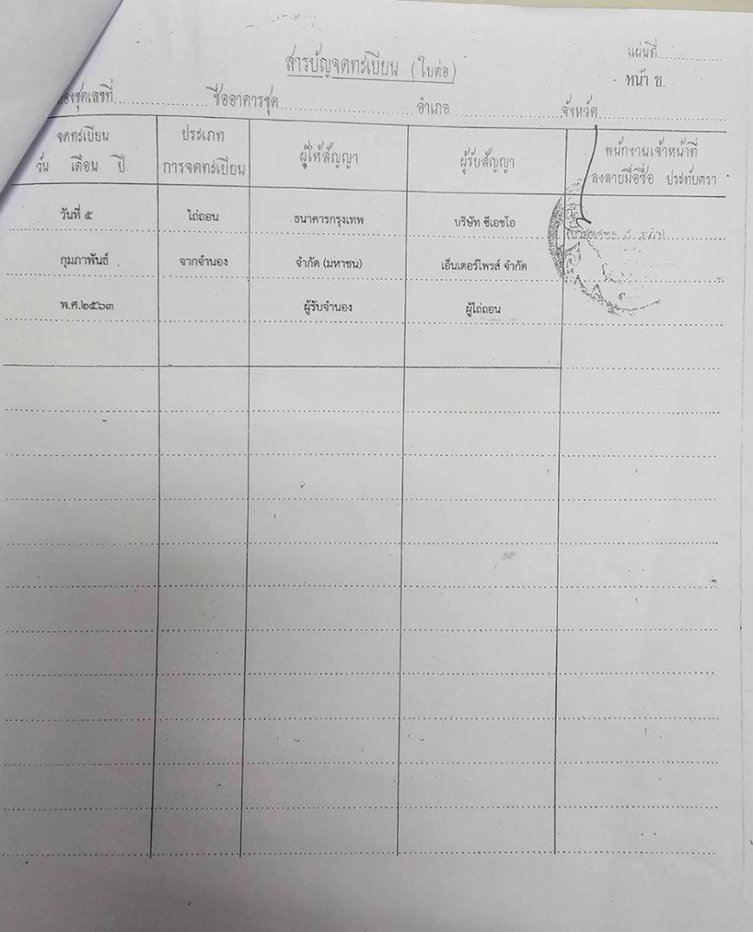 สารบัญจดทะเบียน (ใบต่อ)
แผ่นที่
หน้า ช.
ห้องชุดเลขที่ ชื่ออาคารชุด อำเภอ จังหวัด
จดทะเบียน ประเภท ผู้ให้สัญญา ผู้รับสัญญา พนักงานเจ้าหน้าที่
วัน เดือน ปี การจดทะเบียน ลงลายมือชื่อ ประทับตรา
วันที่ ๕ ไถ่ถอน ธนาคารกรุงเทพ บริษัท ซีเอชโอ
กุมภาพันธ์ จากจำนอง จำกัด (มหาชน) เอ็นเตอร์ไพรส์ จำกัด
พ.ศ.๒๕๖๓ ผู้รับจำนอง ผู้ไถ่ถอน